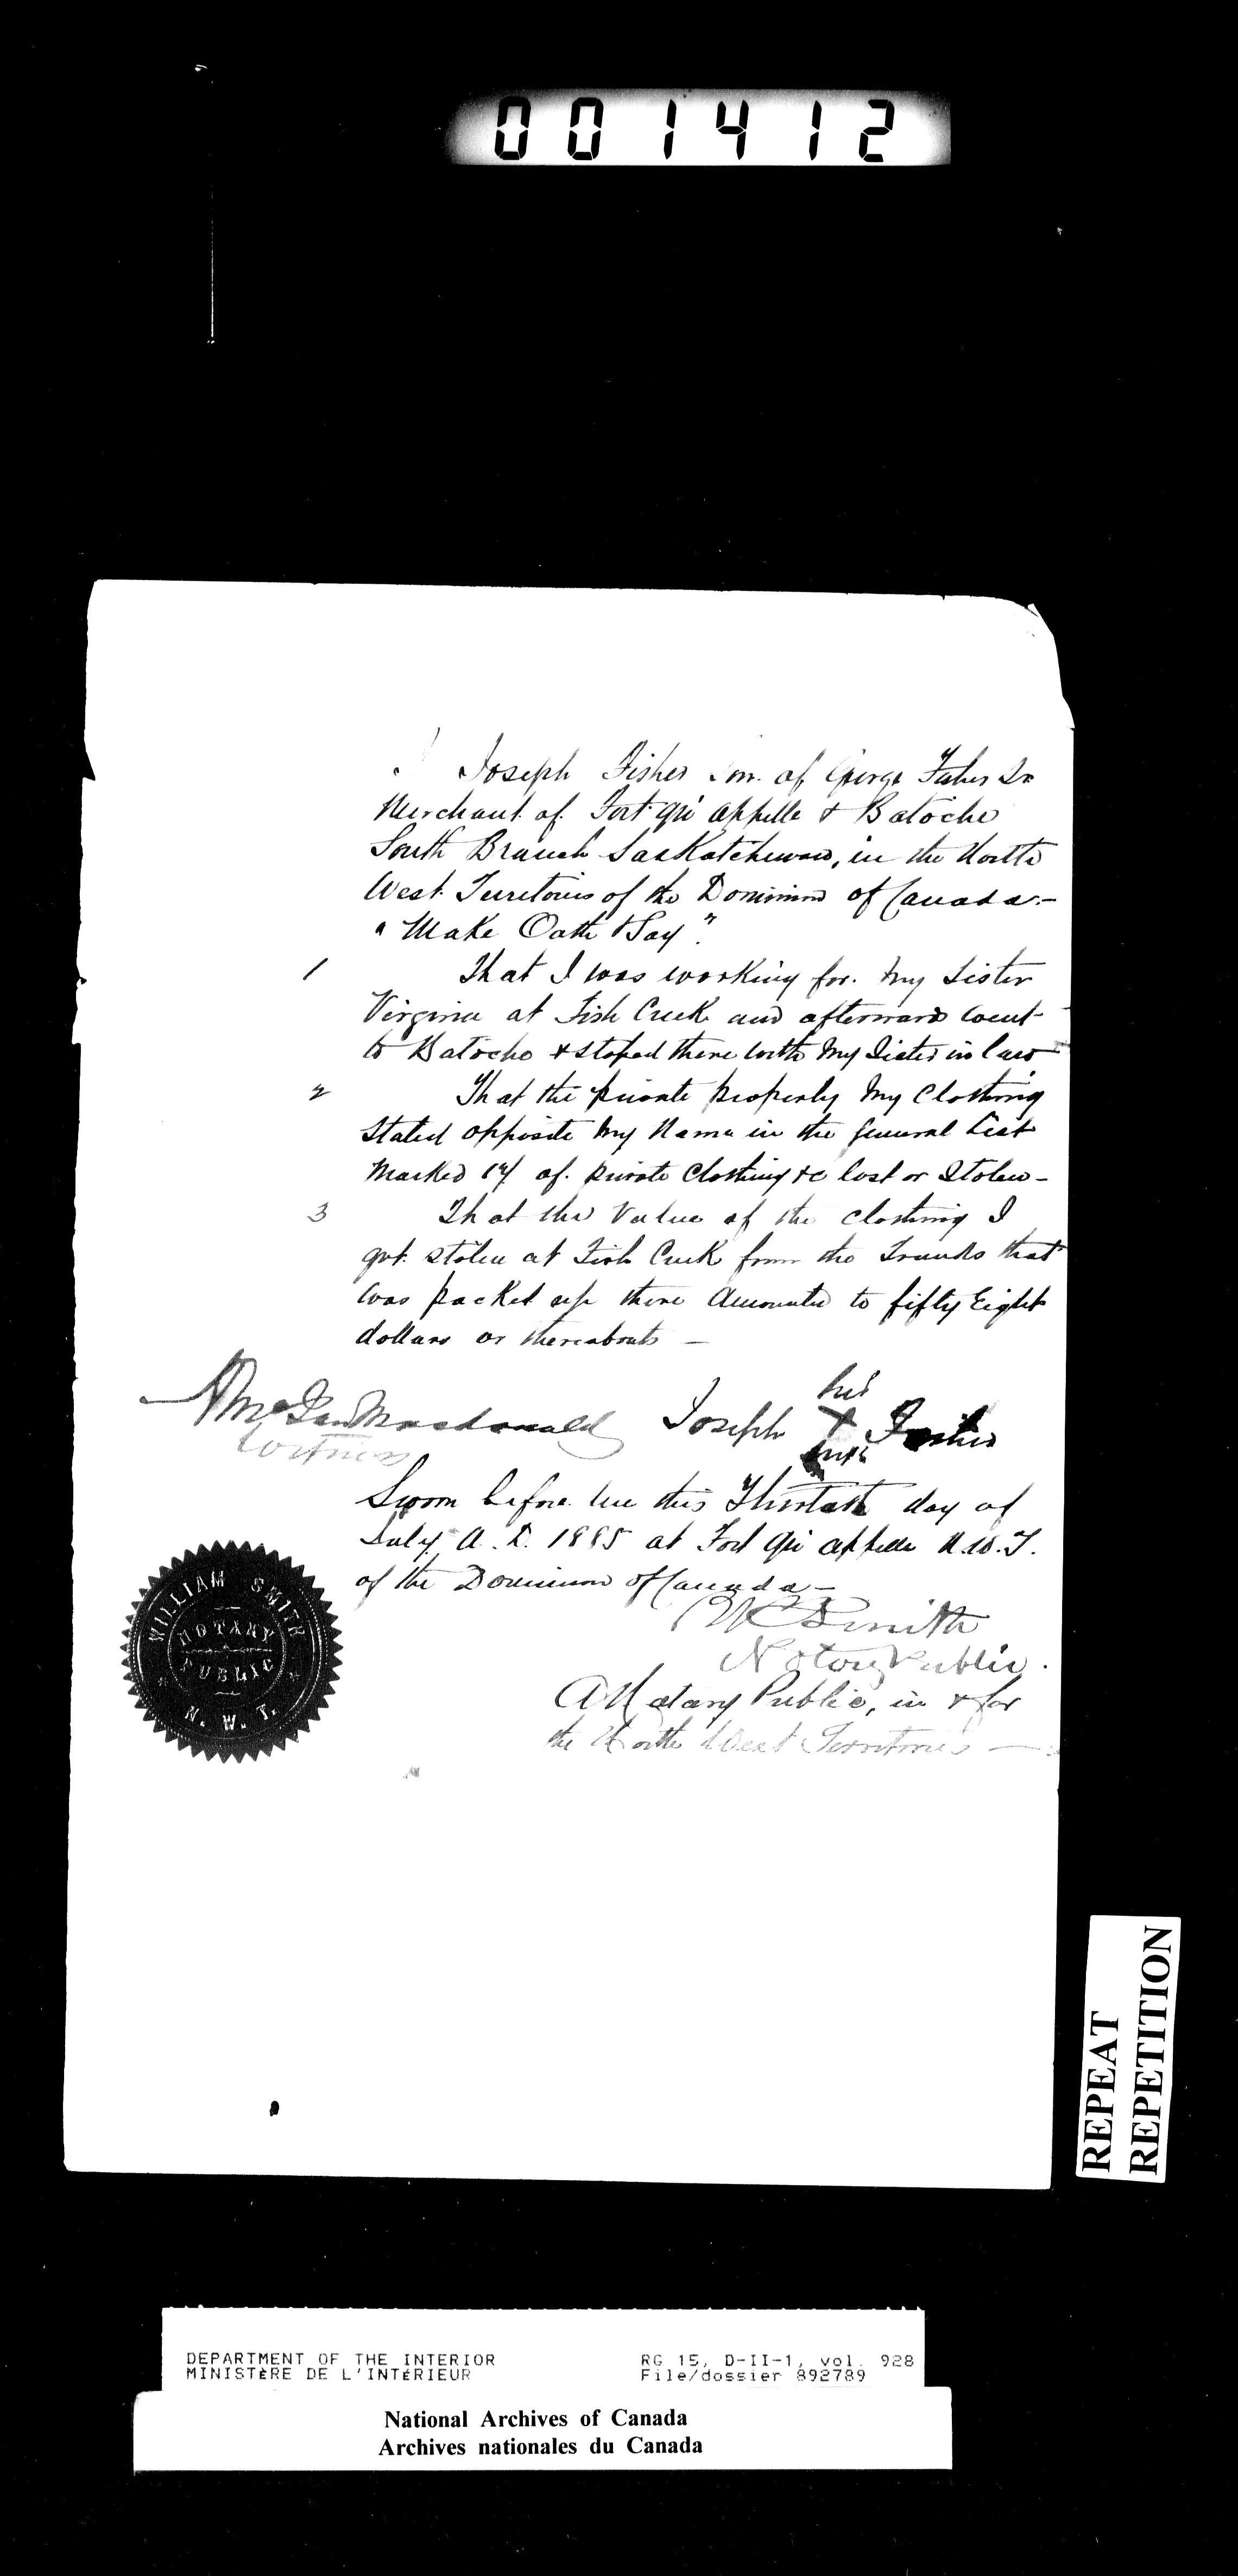 001412
I Joseph Fisher Son of George Fisher Sr
Merchant of Fort Qu'appelle & Batoche
South Branch Saskatchewan, in the North
West Territories of the Dominion of Canada.-
"Make Oath & Say".
1 That I was working for my Sister
Virginia at Fish Creek and afterward went
to Batoche & stoped there with my Sister in law
2 That the private property my Clothing
Stated opposite my Name in the General List
Marked of private Clothing &c lost or Stolen-
3 That the Value of the clothing I
got stolen at Fish Creek from the Trunks that
was packet up there Amounted to fifty Eight
dollars or thereabouts —
Macdonald Joseph his X mark Fisher
Witness
Sworn before me this day of
July A.D. 1885 at Fort Qu'appelle N.W.T.
of the Dominion of Canada-
Wm Smith
Notary Public.
A Notary Public, in & for
the North West Territories —
WILLIAM SMITH
NOTARY
PUBLIC
N. W. T.
REPEAT
REPETITION
DEPARTMENT OF THE INTERIOR RG 15, D-II-1, vol. 928
MINISTÈRE DE L'INTÉRIEUR File/dossier 892789
National Archives of Canada
Archives nationales du Canada